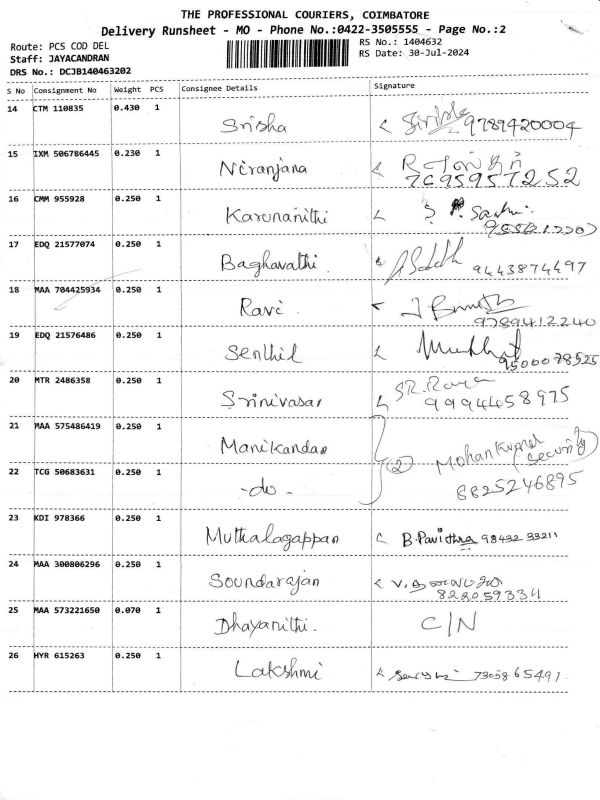 THE PROFESSIONAL COURIERS, COIMBATORE
Delivery Runsheet - MO - Phone No.:0422-3505555 - Page No.:2
Route: PCS COD DEL
Staff: JAYACANDRAN
DRS No.: DCJB140463202
RS No.: 1404632
RS Date: 30-Jul-2024
S No Consignment No Weight PCS Consignee Details Signature
14 CTM 110835 0.430 1 Srisha 9789420004
15 IXM 506786445 0.230 1 Niranjana
7695957252
16 CMM 955928 0.250 1 Karunanithi
17 EDQ 21577074 0.250 1 Baghavathi 9443874497
18 MAA 704425934 0.250 1 Ravi
9789412240
19 EDQ 21576486 0.250 1 Senthil
9500078525
20 MTR 2486358 0.250 1 Srinivasan
9994458975
21 MAA 575486419 0.250 1 Manikandan (2) Mohan Kumar (Security)
22 TCG 50683631 0.250 1 -do- 8825246895
23 KDI 978366 0.250 1 Muthalagappan B. Pavithra 98432 33211
24 MAA 300806296 0.250 1 Soundarajan
25 MAA 573221650 0.070 1 Dhayanithi. C/N
26 HYR 615263 0.250 1 Lakshmi 73058 65491